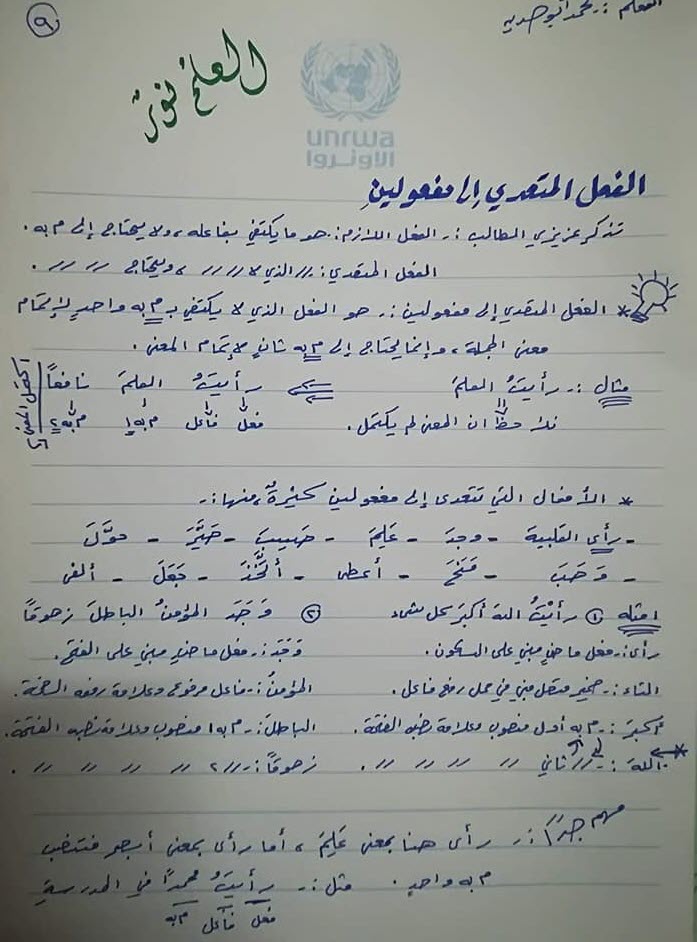 ٩
المعلم :- محمد أبو حدايد
العلم نور
unrwa
الأونروا
الفعل المتعدي إلى مفعولينِ
تذكر عزيزي الطالب :- الفعل اللازم : هو ما يكتفي بفاعله ، ولا يحتاج إلى م به .
الفعل المتعدي : // الذي لا // // ، ويحتاج // // // .
* الفعل المتعدي إلى مفعولين :- هو الفعل الذي لا يكتفي بـ م به واحدٍ لإتمام
معنى الجملة ، وإنما يحتاج إلى م به ثانٍ لإتمام المعنى .
مثال :- رأيتُ العلمَ ⇐ رأيتُ العلمَ نافعاً
اكتمل المعنى
نلاحظ ان المعنى لم يكتمل . فعل فاعل م به١ م به٢
* الأفعال التي تتعدى إلى مفعولين كثيرةٌ ، منها :-
- رأى القلبية - وجدَ - عَلِمَ - حسِبَ - صَيَّرَ - حوَّلَ
- وَهَبَ - مَنَحَ - أعطى - اتَّخَذَ - جَعَلَ - ألفى
امثله ① رأيْتُ اللهَ أكبرَ كل شيء ② وَجَدَ المؤمنُ الباطلَ زهوقاً
رأى :- فعل ماضٍ مبني على السكون . وَجَدَ :- فعل ماضٍ مبني على الفتح .
التاء :- ضمير متصل مبني في محل رفع فاعل . المؤمنُ :- فاعل مرفوع وعلامة رفعه الضمة .
أكبرَ :- م به أول منصوب وعلامة نصبه الفتحة . الباطلَ :- م به١ منصوب وعلامة نصبه الفتحة .
* اللهَ :- // ثاني // // // // . زهوقاً :- // ٢ // // // // .
مهم جدًا :- رأى هنا بمعنى عَلِمَ ، أما رأى بمعنى أبصر فتنصب
م به واحدٍ . مثل :- رأيتُ محمداً في المدرسةِ
فعل فاعل م به